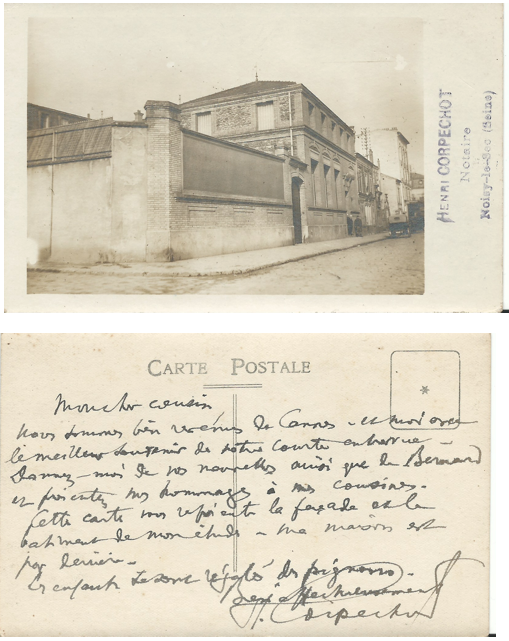 HENRI CORPECHOT
Notaire
Noisy-le-Sec (Seine)
CARTE POSTALE
Mon cher cousin
Nous sommes bien revenus de Cannes - et moi avec
le meilleur souvenir de notre courte entrevue -
Donnez-moi de vos nouvelles ainsi que de Bernard
et présentez mes hommages à mes cousines.
Cette carte vous représente la façade et le
batiment de mon étude - ma maison est
par derrière.
Les enfants se sont régalés des pignons.
affectueusement
H. Corpechot